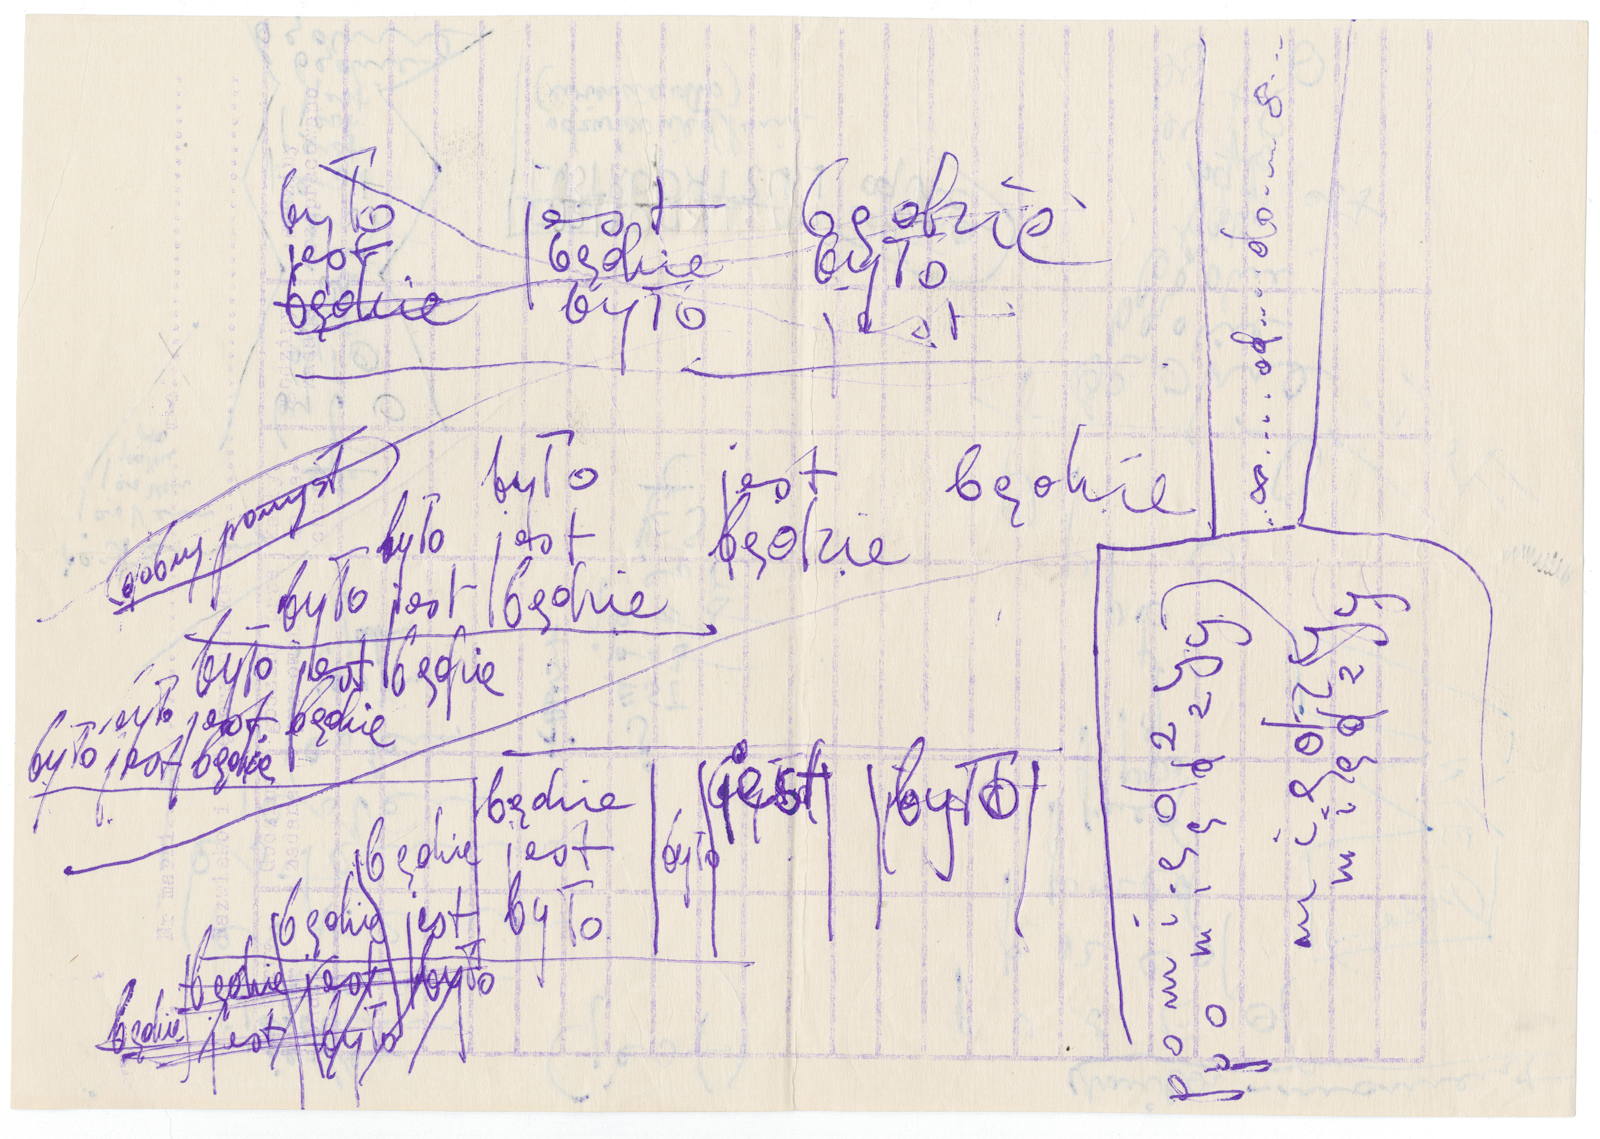 było jest będzie
jest będzie było
będzie było jest
było jest będzie
było jest będzie
było jest będzie
było jest będzie
było jest będzie
było jest będzie
będzie było jest było
będzie jest
będzie jest było
będzie jest było
będzie jest było
∞.....od.....do.....8...
pomiędzy
pomiędzy
między
między